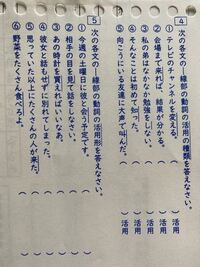 4 次の各文の―線部の動詞の活用の種類を答えなさい。
①テレビのチャンネルを変える。（　）活用
②会場まで来れば、結果が分かる。（　）活用
③私の弟はなかなか勉強をしない。（　）活用
④そんなことは初めて知った。（　）活用
⑤向こうにいる友達に大声で叫んだ。（　）活用
5 次の各文の―線部の動詞の活用形を答えなさい。
①今週の土曜日に彼と会う予定です。（　）
②相手の目を見て話をしなさい。（　）
③あの時計を買えればいいなあ。（　）
④彼女と話もせずに別れてしまった。（　）
⑤思っていた以上にたくさんの人が来た。（　）
⑥野菜をたくさん食べろよ。（　）